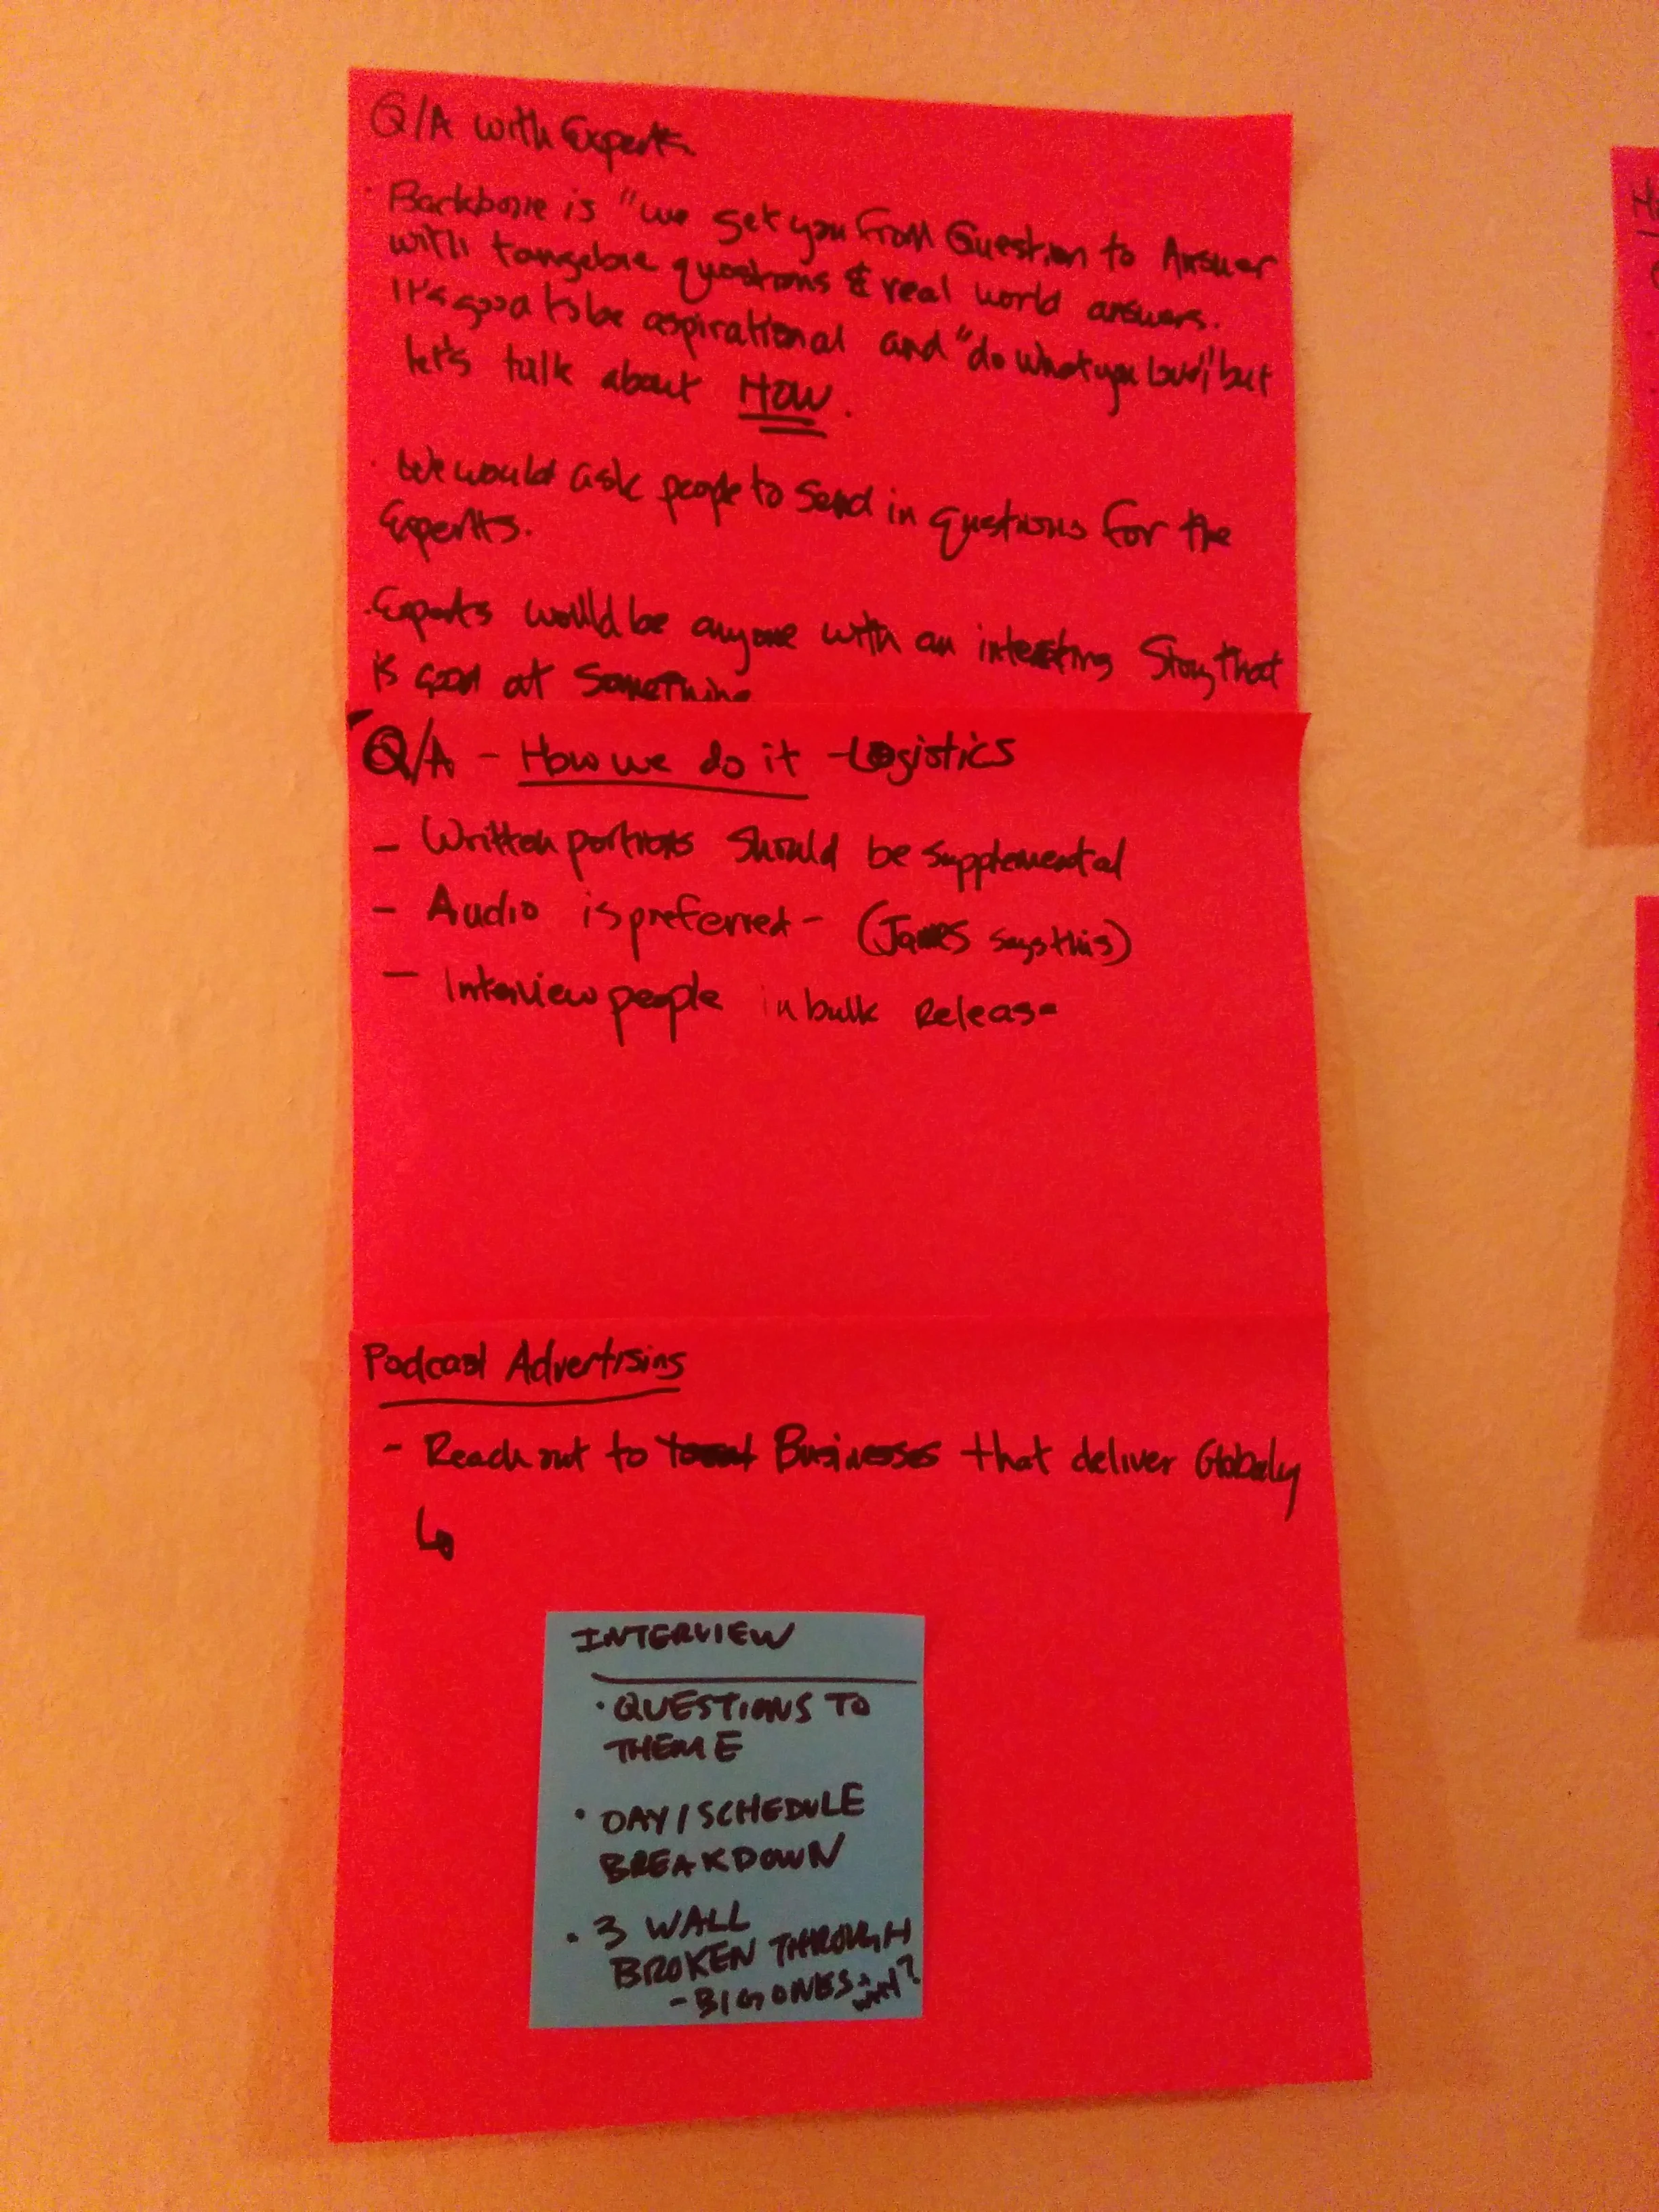 Q/A with Experts
· Backbone is "we get you from Question to Answer
with tangeble questions & real world answers.
It's good to be aspirational and "do what you love", but
let's talk about HOW.
· We would ask people to send in questions for the
Experts.
· Experts would be anyone with an interesting Story that
is good at Something
Q/A - How we do it - Logistics
- Written portions should be supplemental
- Audio is preferred - (James says this)
- Interview people in bulk Release
Podcast Advertising
- Reach out to Businesses that deliver Globaly
INTERVIEW
· QUESTIONS TO
THEME
· DAY/SCHEDULE
BREAKDOWN
· 3 WALL
BROKEN THROUGH
- BIG ONES